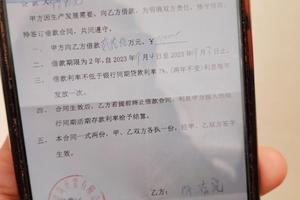 甲方因生产发展需要，向乙方借款，为明确双方责任，恪守信用，
特签订借款合同，共同遵守。
一、甲方向乙方借款 万元，¥
二、借款期限为2年，自2023年9月4日至2025年9月3日止。
三、借款利率不低于银行同期贷款利率7%（两年不变）利息每年
发放一次。
四、合同生效后，乙方若提前终止借款合同，利息甲方按人民银
行同期活期存款利率给予结算。
五、本合同一式两份，甲、乙双方各执一份，经甲、乙双方签字
生效。
乙方：